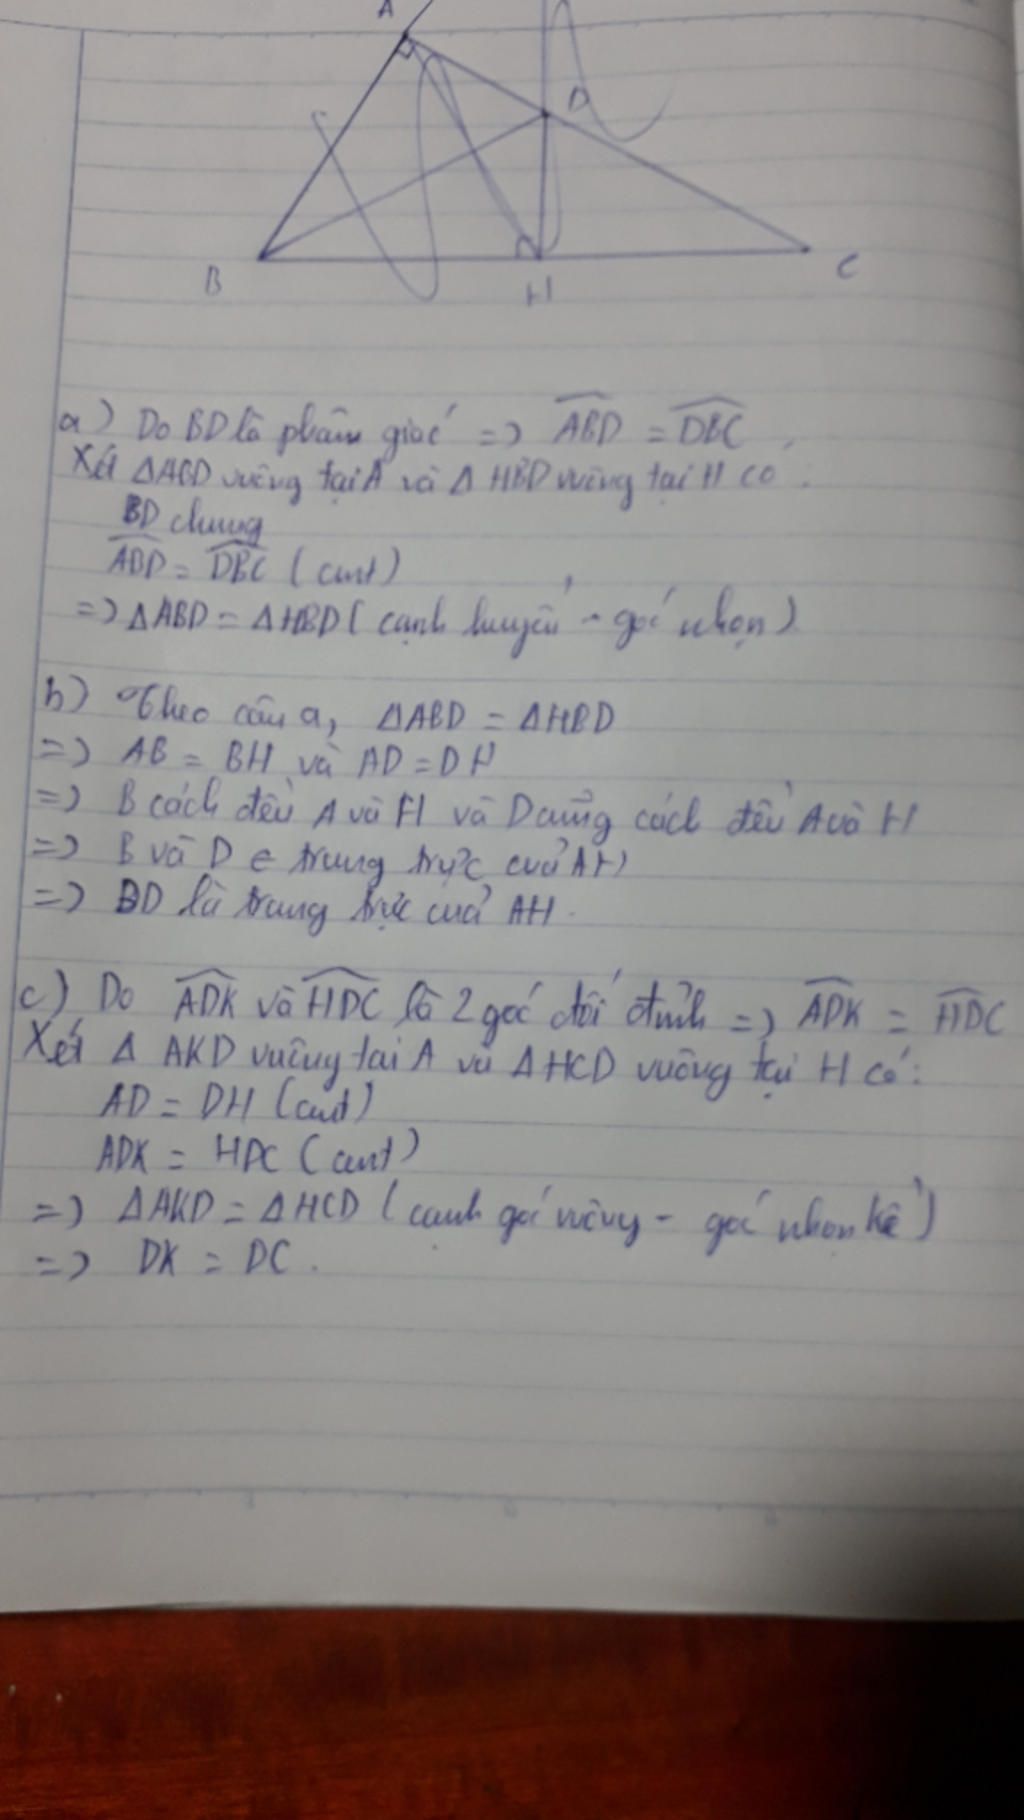 A
D
B
H
C
a) Do BD là phân giác => ABD = DBC
Xét ΔABD vuông tại A và Δ HBD vuông tại H có :
BD chung
ABD = DBC (cmt)
=> ΔABD = ΔHBD ( cạnh huyền - góc nhọn )
b) Theo câu a, ΔABD = ΔHBD
=> AB = BH và AD = DH
=> B cách đều A và H và D cũng cách đều A và H
=> B và D ∈ trung trực của AH
=> BD là trung trực của AH.
c) Do ADK và HDC là 2 góc đối đỉnh => ADK = HDC
Xét Δ AKD vuông tại A và ΔHCD vuông tại H có :
AD = DH (cmt)
ADK = HDC (cmt)
=> ΔAKD = ΔHCD ( cạnh góc vuông - góc nhọn kề )
=> DK = DC .